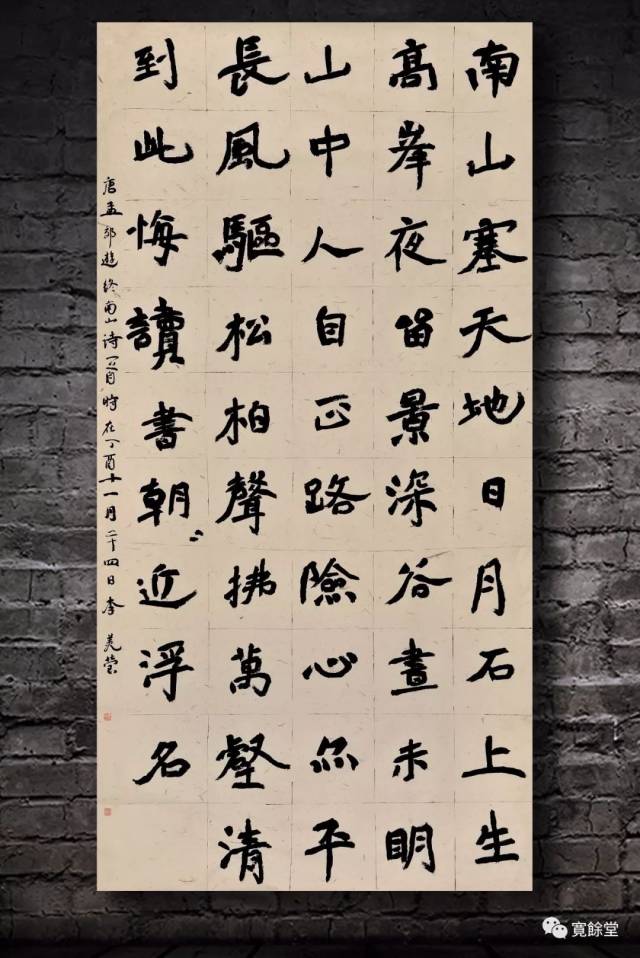 南山塞天地日月石上生
高峯夜留景深谷晝未明
山中人自正路險心亦平
長風驅松柏聲拂萬壑清
到此悔讀書朝〻近浮名
唐孟郊遊終南山诗一首時在丁酉十一月二十四日李美莹
寬餘堂